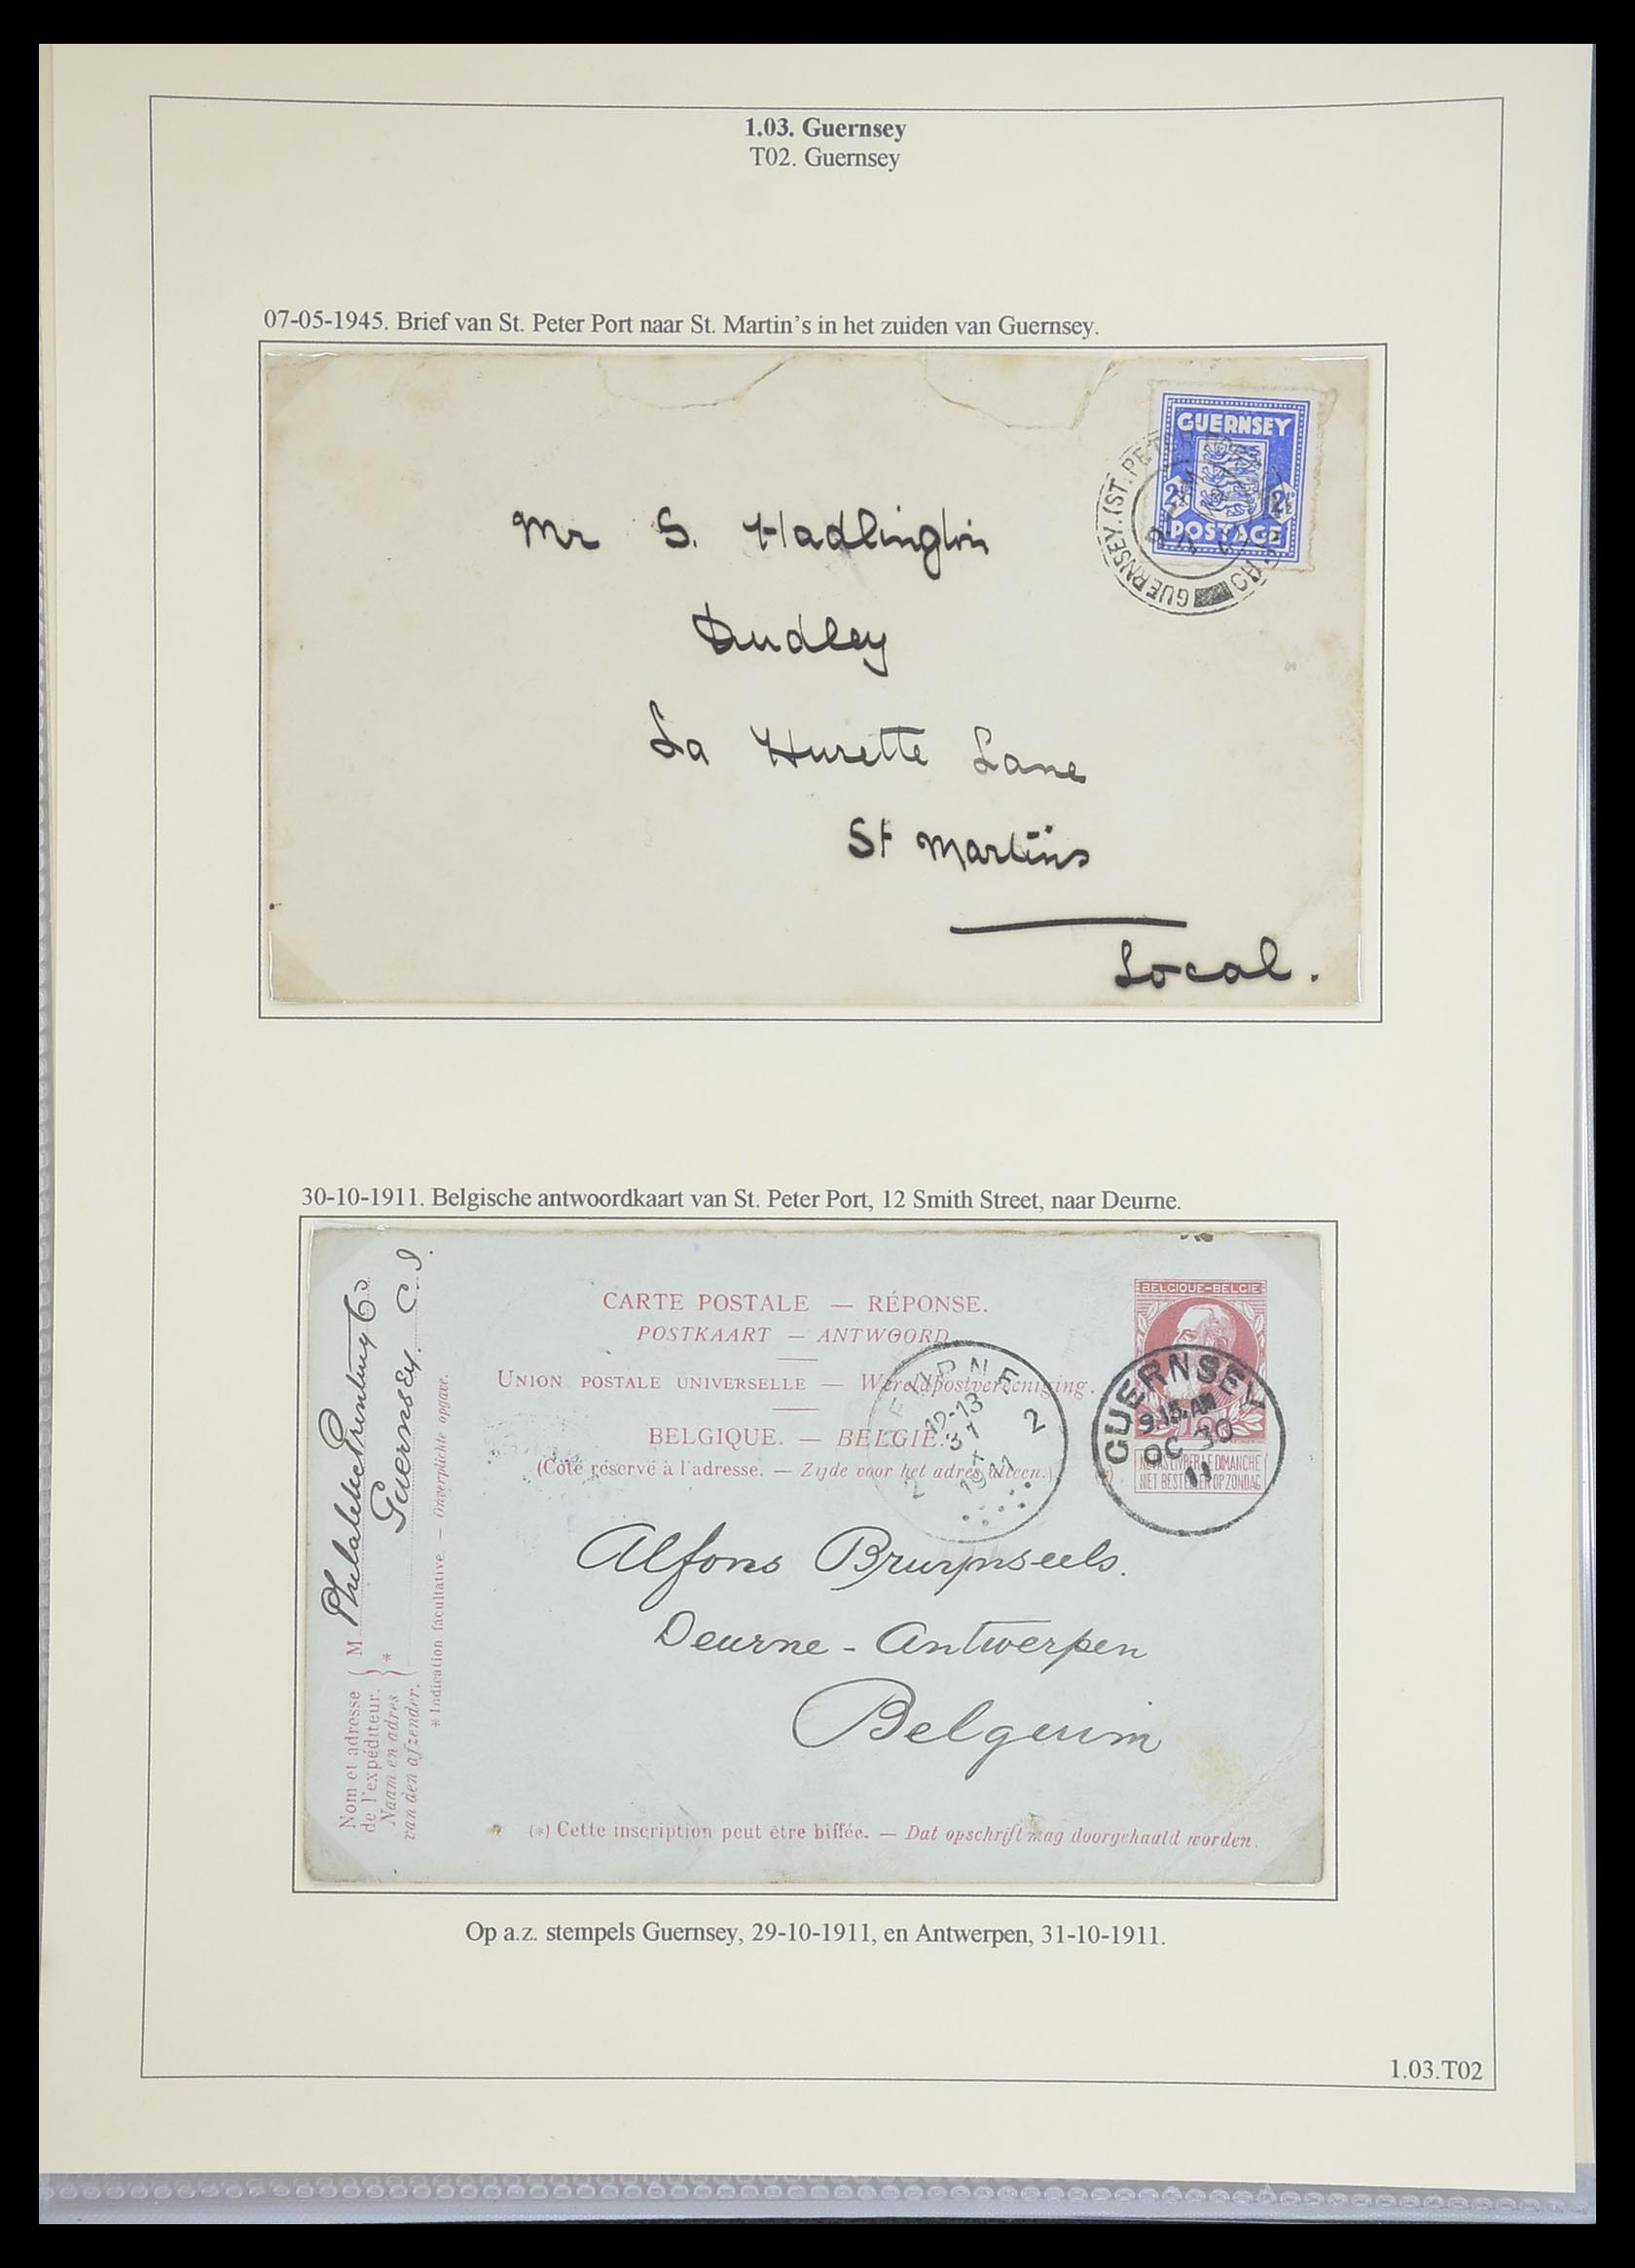 1.03. Guernsey
T02. Guernsey
07-05-1945. Brief van St. Peter Port naar St. Martin's in het zuiden van Guernsey.
GUERNSEY
2½ 2½
POSTAGE
GUERNSEY. (ST. PETER
CH.
Mr S. Hadlington
Dudley
La Hurette Lane
St Martins
Local.
30-10-1911. Belgische antwoordkaart van St. Peter Port, 12 Smith Street, naar Deurne.
CARTE POSTALE — RÉPONSE.
POSTKAART — ANTWOORD
UNION POSTALE UNIVERSELLE — Wereldpostvereeniging.
BELGIQUE. — BELGIË.
(Côté réservé à l'adresse. — Zijde voor het adres alleen.)
BELGIQUE-BELGIE
10
NE PAS LIVRER LE DIMANCHE
NIET BESTELLEN OP ZONDAG
(*)
DEURNE
12-13
31
X
1911
2 2
GUERNSEY
9.15.AM
OC 30
11
Alfons Bruynseels.
Deurne - Antwerpen
Belgium
Nom et adresse
de l'expéditeur.
Naam en adres
van den afzender.
M Philatelic Printing Co
* Guernsey. C.I.
* Indication facultative — Onverplichte opgave.
(*) Cette inscription peut être biffée. — Dat opschrift mag doorgehaald worden.
Op a.z. stempels Guernsey, 29-10-1911, en Antwerpen, 31-10-1911.
1.03.T02